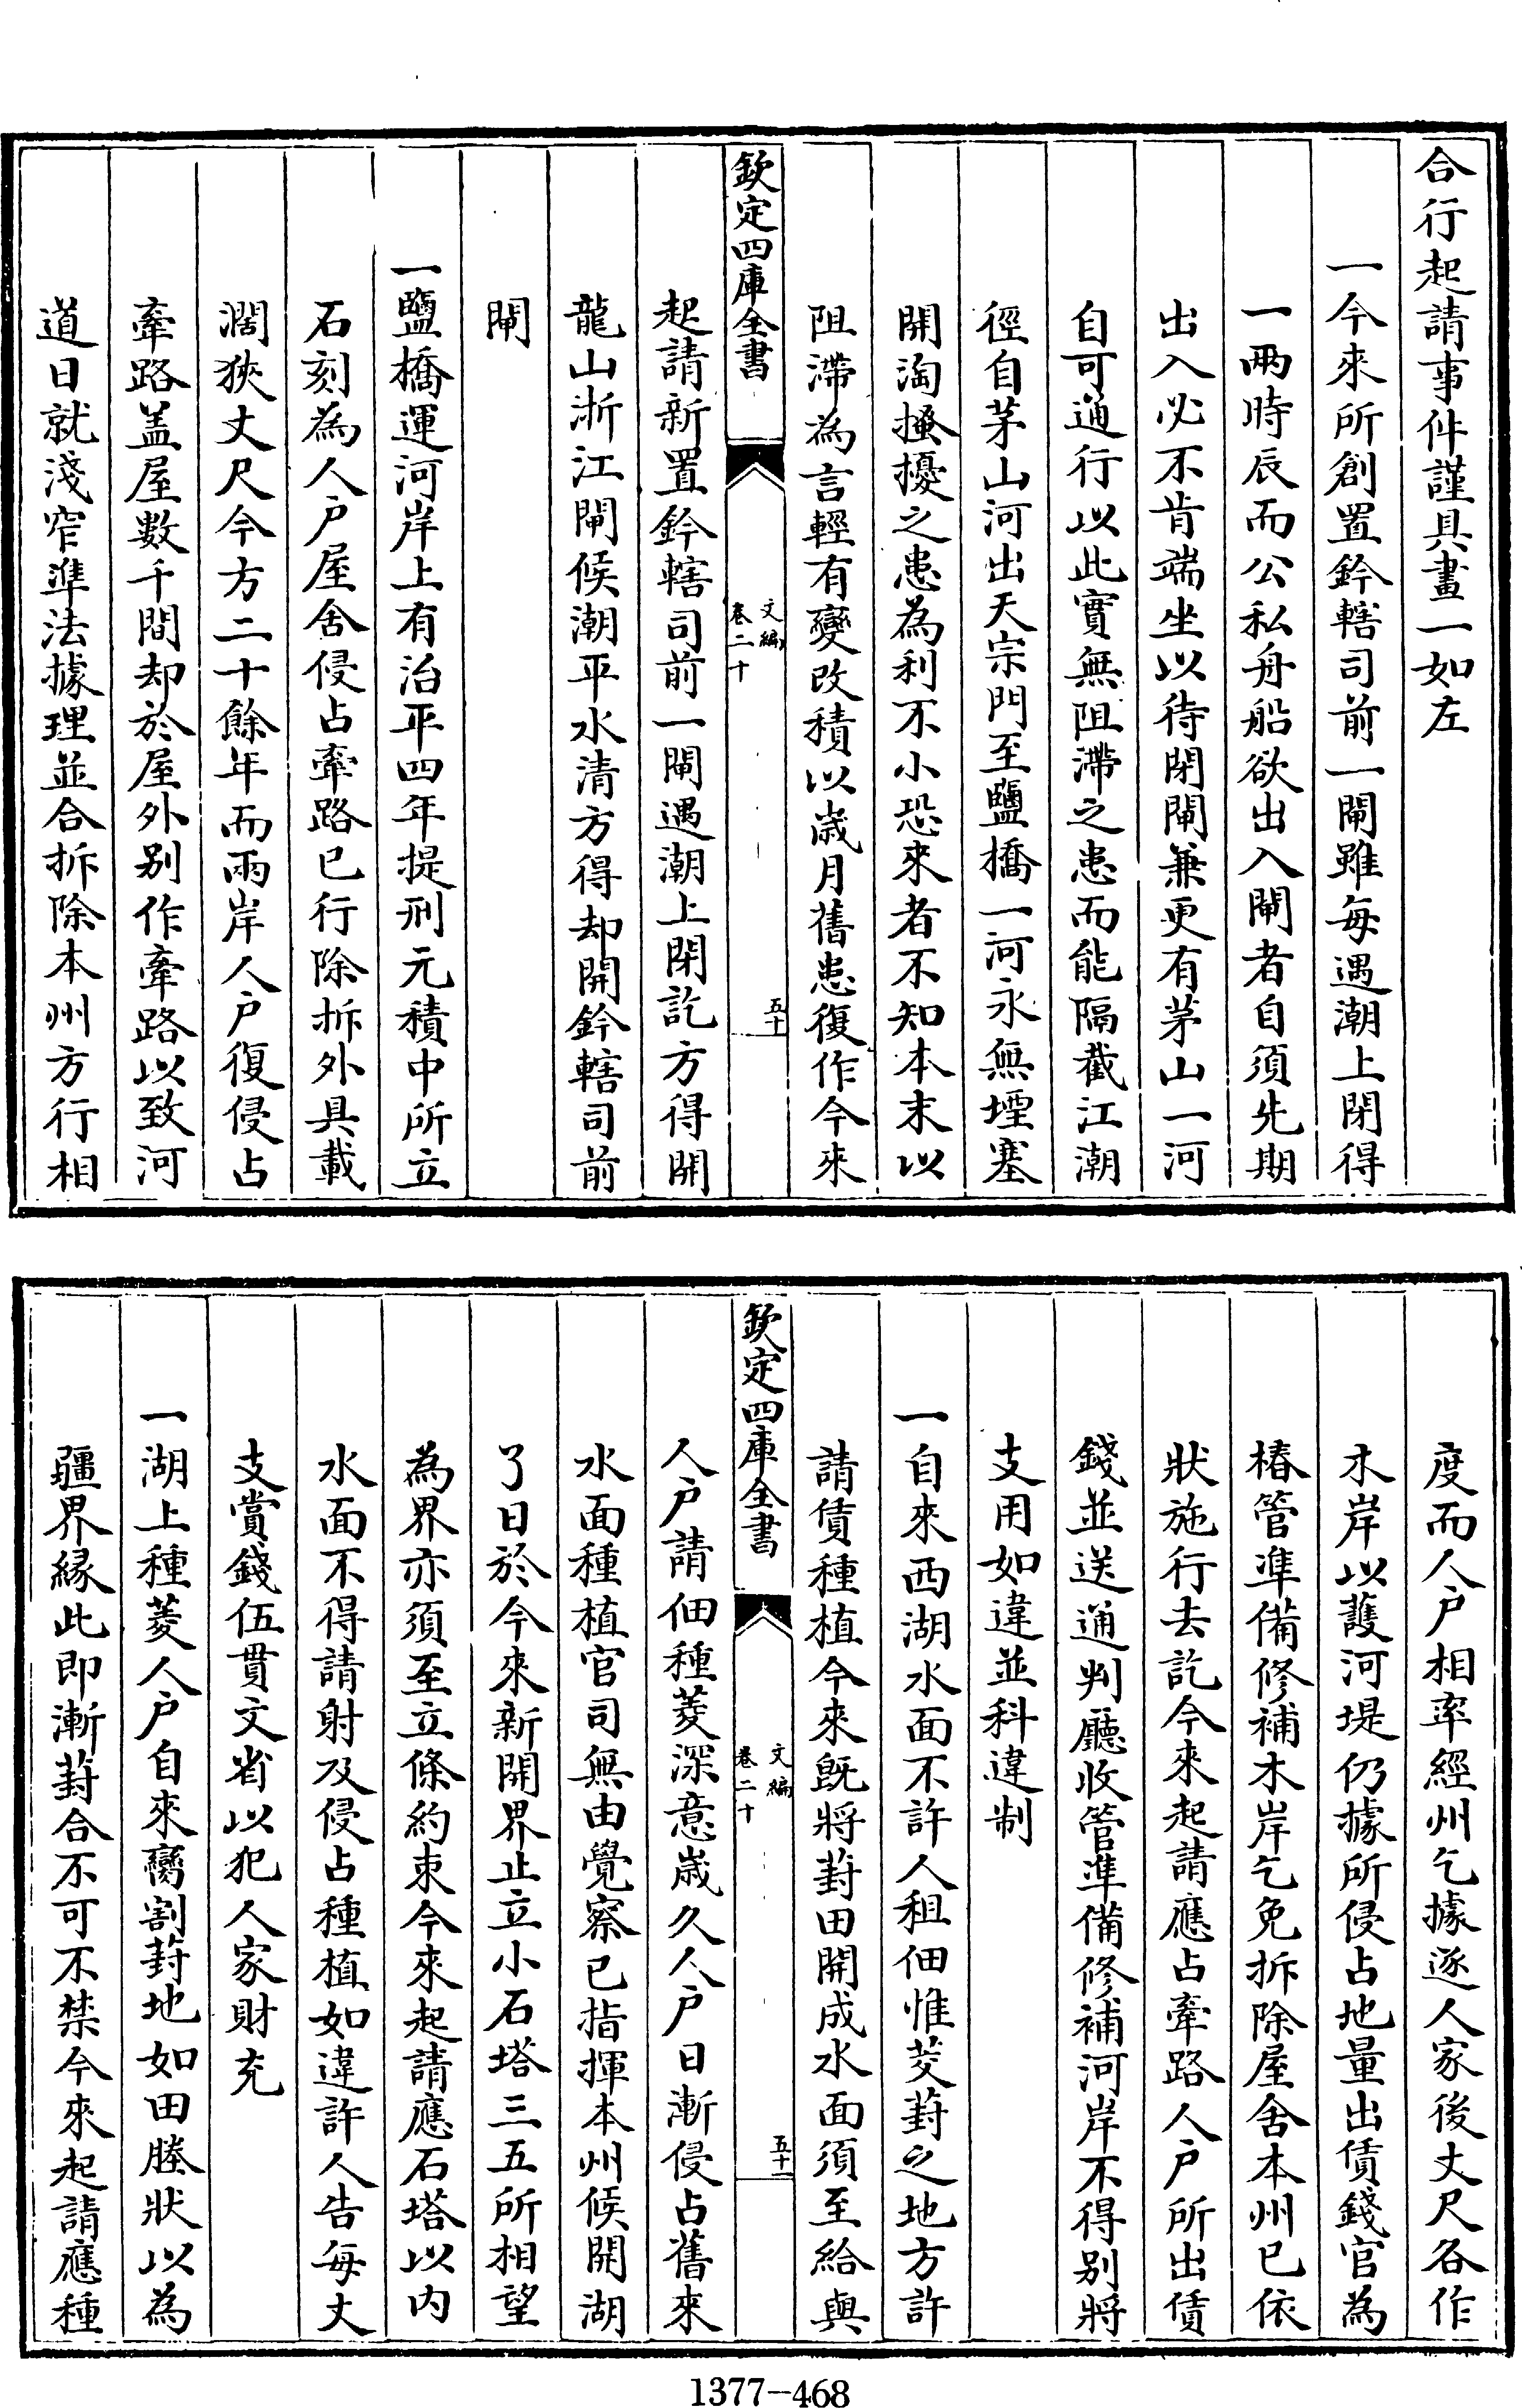 合行起請事件謹具畫一如左
一今來所創置鈐轄司前一閘雖每遇潮上閉得
一兩時辰而公私舟船欲出入閘者自須先期
出入必不肯端坐以待閉閘兼更有茅山一河
自可通行以此實無阻滯之患而能隔截江潮
徑自茅山河出天宗門至鹽橋一河永無堙塞
開淘搔擾之患為利不小恐來者不知本末以
阻滯為言輕有變改積以歲月舊患復作今來
欽定四庫全書
文編
卷二十
五十
起請新置鈐轄司前一閘遇潮上閉訖方得開
龍山浙江閘候潮平水清方得却開鈐轄司前
閘
一鹽橋運河岸上有治平四年提刑元積中所立
石刻為人户屋舍侵占牽路已行除拆外具載
濶狹丈尺今方二十餘年而兩岸人户復侵占
牽路盖屋數千間却於屋外别作牽路以致河
道日就淺窄準法據理並合拆除本州方行相
度而人户相率經州乞據逐人家後丈尺各作
木岸以護河堤仍據所侵占地量出賃錢官為
樁管準備修補木岸乞免拆除屋舍本州已依
狀施行去訖今來起請應占牽路人户所出賃
錢並送通判廳收管準備修補河岸不得别將
支用如違並科違制
一自來西湖水面不許人租佃惟茭葑之地方許
請賃種植今來既將葑田開成水面須至給與
欽定四庫全書
文編
卷二十
五十一
人户請佃種菱深意歲久人户日漸侵占舊來
水面種植官司無由覺察已指揮本州候開湖
了日於今來新開界止立小石塔三五所相望
為界亦須至立條約束今來起請應石塔以内
水面不得請射及侵占種植如違許人告每丈
支賞錢伍貫文省以犯人家財充
一湖上種菱人户自來臠割葑地如田塍狀以為
疆界緣此即漸葑合不可不禁今來起請應種
1377-468